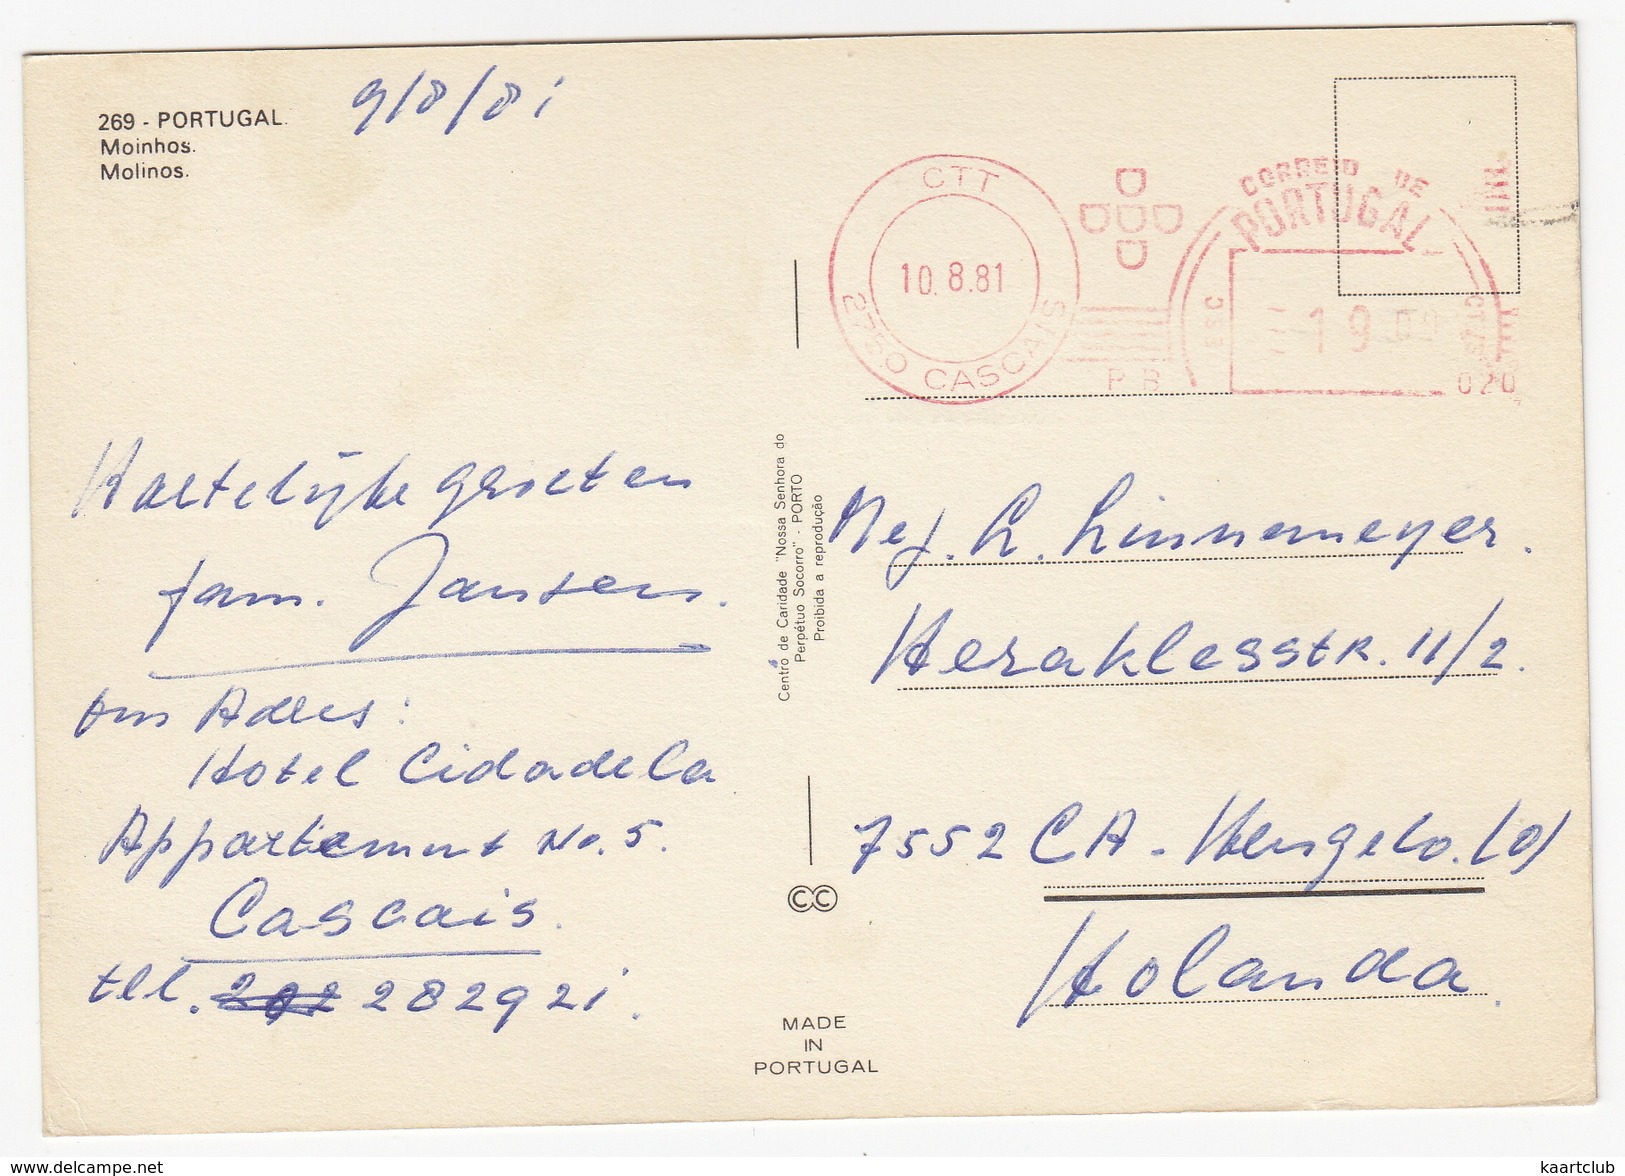 269 - PORTUGAL.
Moinhos.
Molinos.
9/8/81
CTT
10.8.81
2750 CASCAIS
P B
CORREIO DE
PORTUGAL
ESC
19 00
020
Hartelijke groeten
fam. Jansen.
ons Adres:
Hotel Cidadela
Appartement No. 5.
Cascais.
tel. 282921.
Centro de Caridade "Nossa Senhora do
Perpétuo Socorro" - PORTO
Proibida a reprodução
CC
MADE
IN
PORTUGAL
Mej. L. Linnemeyer.
Heraklesstr. 11/2.
7552 CA - Hengelo. (O)
Holanda.
www.delcampe.net
kaartclub